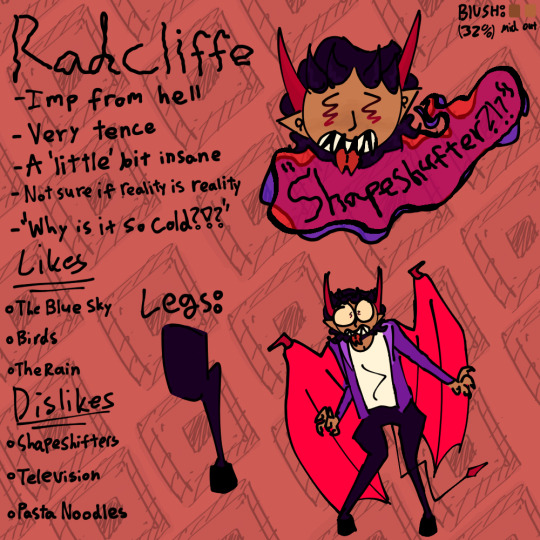 Radcliffe
-Imp from hell
-Very tence
-A 'little' bit insane
-Not sure if reality is reality
-"Why is it so cold?!?!?"
Likes
The Blue Sky
Birds
The Rain
Dislikes
Shapeshifters
Television
Pasta Noodles
Legs:
"Shapeshifter?!?"
Blush:
(32%) mid out